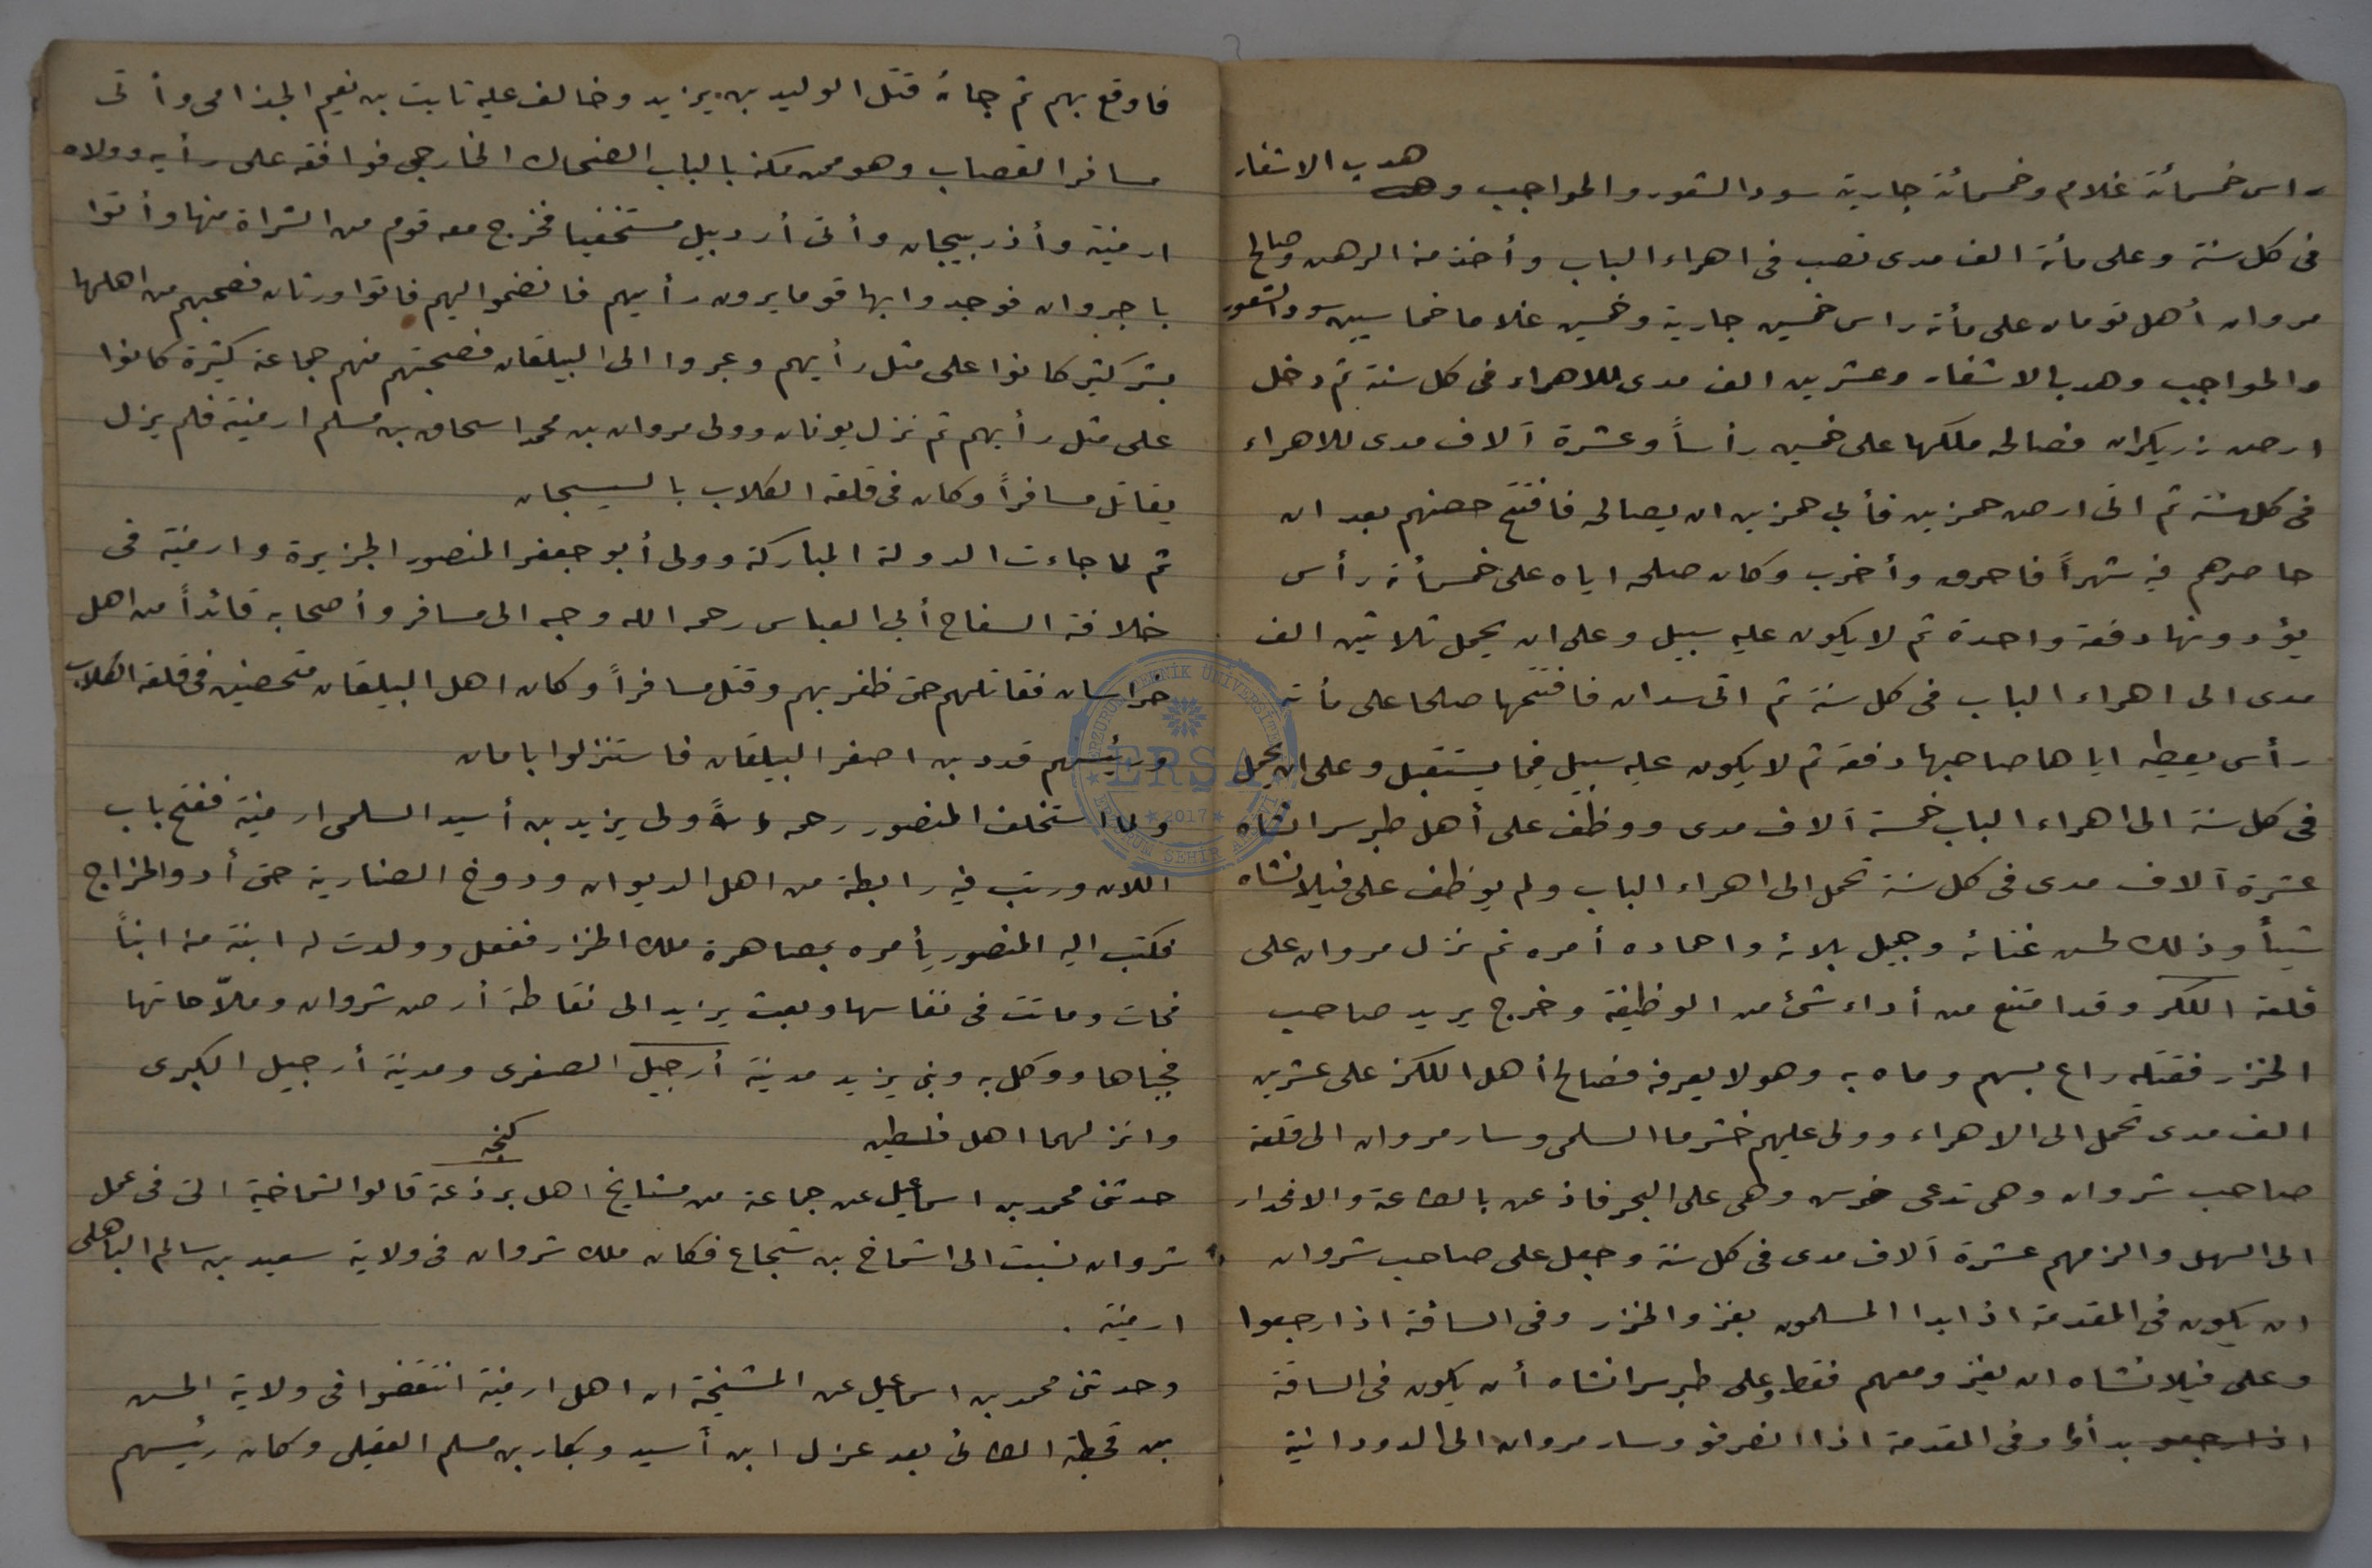 راس خمسمائة غلام وخمسمائة جارية سود الشعور والحواجب وهدب الاشفار
فى كل سنة وعلى مائة الف مدى تصب فى اهراء الباب وأخذ منه الرهن وصالح
مروان أهل تومان على مأئة راس خمسين جارية وخمسين غلاما خماسيين سود الشعور
والحواجب وهدب الاشفار وعشرين الف مدى للاهراء فى كل سنة ثم دخل
ارض زريكران فصالحه ملكها على خمسين رأساً وعشرة آلاف مدى للاهراء
فى كل سنة ثم اتى ارض حمزين فأبي حمزين ان يصالحه فافتتح حصنهم بعد ان
حاصرهم فيه شهراً فاحرق وأخرب وكان صلحه اياه على خمسمأئة رأس
يؤدونها دفعة واحدة ثم لا يكون عليه سبيل وعلى ان يحمل ثلاثين الف
مدى الى اهراء الباب فى كل سنة ثم اتى سدان فافتتحها صلحا على مأئة
رأس يعطيه اياها صاحبها دفعة ثم لا يكون عليه سبيل فيما يستقبل وعلى ان يحمل
فى كل سنة الى اهراء الباب خمسة آلاف مدى ووظف على أهل طبرسرانشاه
عشرة آلاف مدى فى كل سنة تحمل الى اهراء الباب ولم يوظف على فيلانشاه
شيئاً وذلك لحسن غنائه وجميل بلائه واحماده أمره ثم نزل مروان على
قلعة اللكز وقد امتنع من أداء شئ من الوظيفة وخرج يريد صاحب
الخزر فقتله راع بسهم رماه به وهو لا يعرفه فصالح أهل اللكز على عشرين
الف مدى تحمل الى الاهراء وولى عليهم خشرما السلمى وسار مروان الى قلعة
صاحب شروان وهى تدعى خرس وهى على البحر فاذعن بالطاعة والانحدار
الى السهل والزمهم عشرة آلاف مدى فى كل سنة وجعل على صاحب شروان
ان يكون فى المقدمة اذا بدا المسلمون بغزو الخزر وفى الساقة اذا رجعوا
وعلى فيلانشاه ان يغزو معهم فقط وعلى طبرسرانشاه أن يكون فى الساقة
اذا رجعو بدأوا وفى المقدمة اذا انصرفو وسار مروان الى الدودانية
فاوقع بهم ثم جاءه قتل الوليد بن يزيد وخالف عليه ثابت بن نعيم الجذامى وأتى
مسافر القصاب وهو ممن مكنه بالباب الضحاك الخارجى فوافقه على رأيه وولاه
ارمنية وأذربيجان وأتى أردبيل مستخفيا فخرج معه قوم من الشراة منها وأتوا
باجروان فوجدوا بها قوما يرون رأيهم فانضموا اليهم فاتوا ورثان فصحبهم من اهلها
بشر كثير كانوا على مثل رأيهم وعبروا الى البيلقان فصحبهم منهم جماعة كثيرة كانوا
على مثل رأيهم ثم نزل يونان وولى مروان بن محمد اسحاق بن مسلم ارمنية فلم يزل
يقاتل مسافراً وكان فى قلعة الكلاب بالسيسجان
ثم لما جاءت الدولة المباركة وولى أبو جعفر المنصور الجزيرة وارمنية فى
خلافة السفاح أبي العباس رحمه الله وجه الى مسافر وأصحابه قائداً من اهل
خراسان فقاتلهم حتى ظفر بهم وقتل مسافراً وكان اهل البيلقان متحصنين فى قلعة الكلاب
ورئيسهم قدد بن اصفر البيلقان فاستنزلوا بامان
ولما استخلف المنصور رحمه ولى يزيد بن أسيد السلمى ارمنية ففتح باب
اللان ورتب فيه رابطة من اهل الديوان ودوخ الصنارية حتى أدوا الخراج
فكتب اليه المنصور يأمره بمصاهرة ملك الخزار ففعل وولدت له ابنة منه ابناً
فمات وماتت فى نفاسها وبعث يزيد الى نفاطة أرض شروان وملاّحاتها
فجباها ووكل به وبنى يزيد مدينة أرجيل الصغرى ومدينة أرجيل الكبرى
وانزلهما اهل فلسطين
كنجه
حدثنى محمد بن اسماعيل عن جماعة من مشايخ اهل برذعة قالوا الشماخية التى فى عمل
شروان نسبت الى الشماخ بن شجاع فكان ملك شروان فى ولاية سعيد بن سالم الباهلى
ارمنية .
وحدثنى محمد بن اسماعيل عن المشيخة ان اهل ارمنية انتقضوا فى ولاية الحسن
بن قحطبة الطائى بعد عزل ابن أسيد وبكار بن مسلم العقيلى وكان رئيسهم
ERZURUM TEKNİK ÜNİVERSİTESİ
ERSA
★ 2017 ★